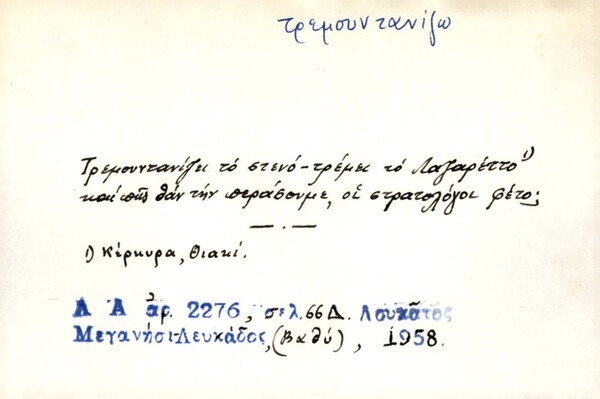 τρεμουντανίζω
Τρεμουντανίζει τό στενό-τρέμει τό Λαζαρέττο¹⁾
καί πῶς θάν τήν περάσουμε, οἱ στρατολόγοι φέτο;
1) Κέρκυρα, Θιακί.
Λ Α ἀρ. 2276, σελ. 66 Δ. Λουκᾶτος
Μεγανήσι-Λευκάδος, (Βαθύ), 1958.